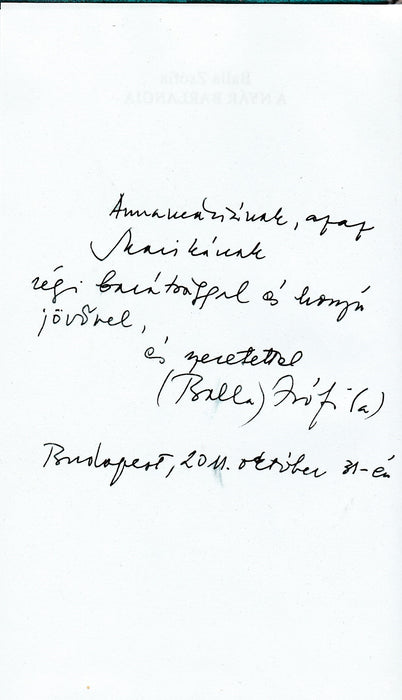 Balla Zsófia
A NYÁR BARLANGJA
Annamáriának, azaz
Marikának
régi barátsággal és hosszú
jövővel,
és szeretettel
(Balla) Zsófi(a)
Budapest, 2011. október 31-én